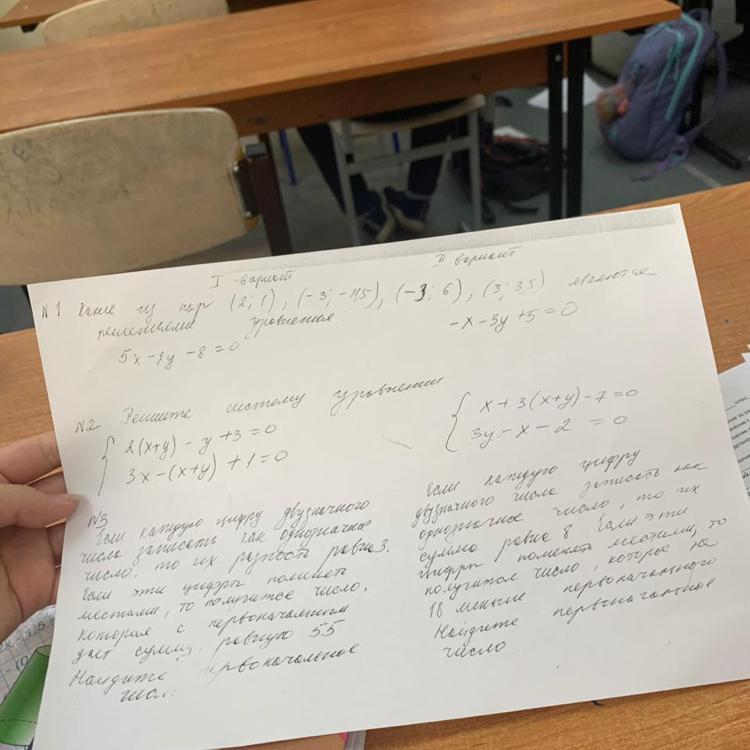 I - вариант
II вариант
N1 Какие из пар (2; 1), (-3; -11,5), (-3; 6), (3; 3,5) являются
решениями уравнения:
5x - 2y - 8 = 0
-x - 3y + 5 = 0
N2 Решите систему уравнений
2(x+y) - y + 3 = 0
3x - (x+y) + 1 = 0
x + 3(x+y) - 7 = 0
3y - x - 2 = 0
N3
Если каждую цифру двузначного
числа записать как однозначное
число, то их разность равна 3.
Если эти цифры поменять
местами, то получится число,
которая с первоначальным
дает сумму, равную 55
Найдите первоначальное
число
Если каждую цифру
двузначного числа записать как
однозначное число, то их
сумма равна 8. Если эти
цифры поменять местами, то
получится число, которое на
18 меньше первоначального
Найдите первоначальное
число